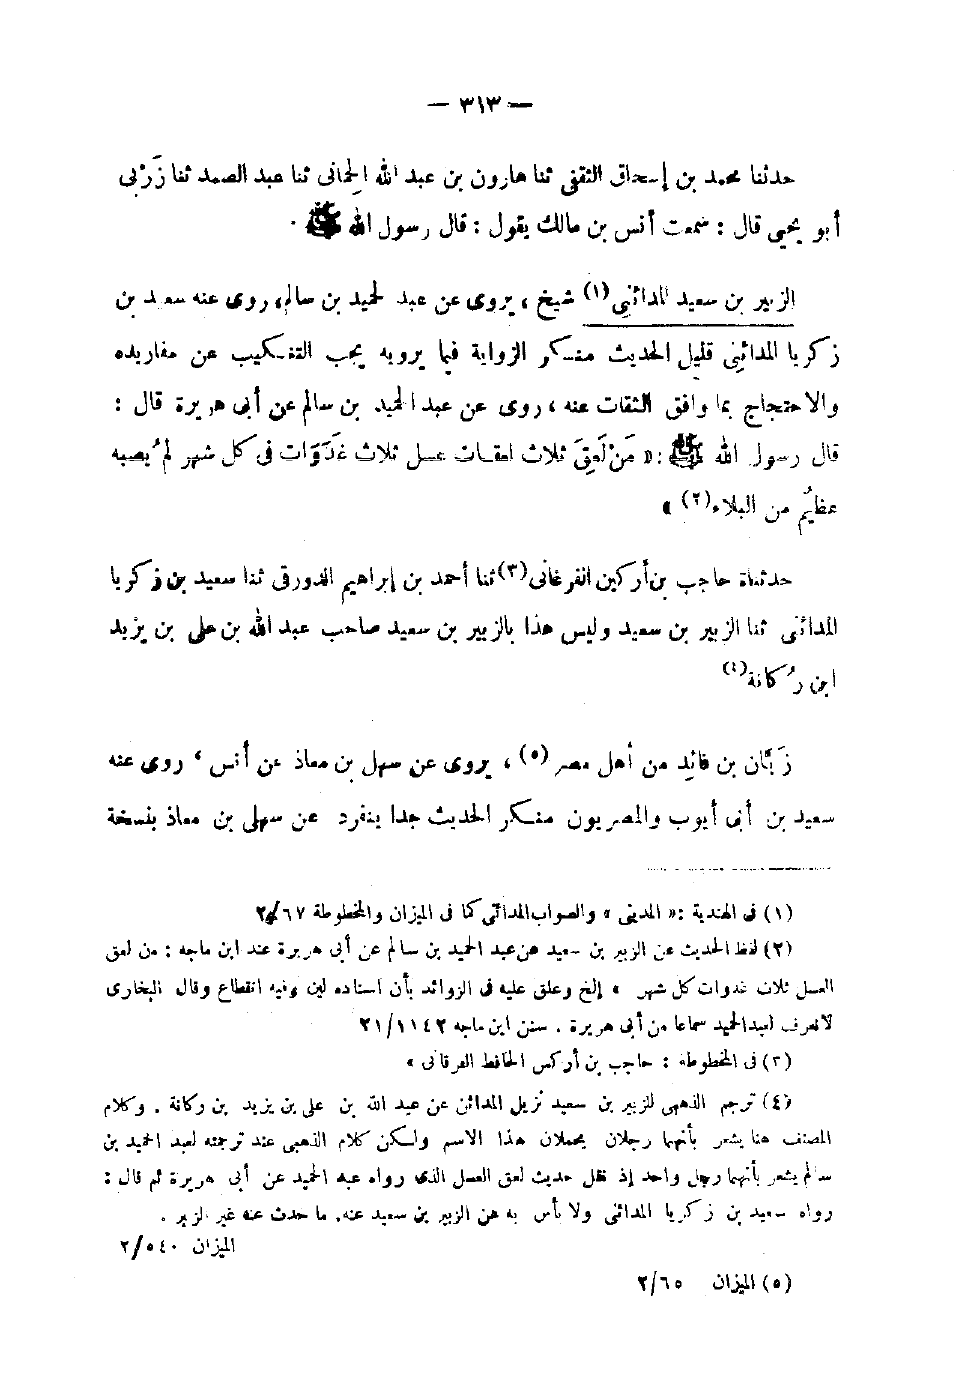 — ٣١٣ —
حدثنا محمد بن إسحاق الثقفي ثنا هارون بن عبد الله الحمانى ثنا عبد الصمد ثنا زَرْبى
أبو يحيى قال : سمعت أنس بن مالك يقول : قال رسول الله ﷺ .
الزبير بن سعيد المدائني (١) شيخ ، يروى عن عبد الحميد بن سالم، روى عنه سعيد بن
زكريا المدائنى قليل الحديث منكر الرواية فيما يرويه يجب التنكيب عن مفاريده
والاحتجاج بما وافق الثقات عنه ، روى عن عبد الحميد بن سالم عن أبى هريرة قال :
قال رسول الله ﷺ : « مَنْ لَعِقَ ثلاث لعقات عسل ثلاث غَدَوَات فى كل شهر لم يُصبه
عظيمٌ من البلاء (٢) »
حدثناه حاجب بن أركين الفرغانى (٣) ثنا أحمد بن إبراهيم الدورقى ثنا سعيد بن زكريا
المدائنى ثنا الزبير بن سعيد وليس هذا بالزبير بن سعيد صاحب عبد الله بن على بن يزيد
ابن رُكانة (٤)
زَبَّان بن فائِد من أهل مصر (٥) ، يروى عن سهل بن معاذ عن أنس ، روى عنه
سعيد بن أبى أيوب والمصريون منكر الحديث جدا ينفرد عن سهل بن معاذ بنسخة
(١) فى الهندية : « المدينى » والصواب المدائنى كما فى الميزان والمخطوطة ٢/٦٧
(٢) لفظ الحديث عن الزبير بن سعيد عن عبد الحميد بن سالم عن أبى هريرة عند ابن ماجه : من لعق
العسل ثلاث غدوات كل شهر » إلخ وعلق عليه فى الزوائد بأن اسناده لين وفيه انقطاع وقال البخارى
لا نعرف لعبد الحميد سماعا من أبى هريرة . سنن ابن ماجه ٢١/١١٤٢
(٣) فى المخطوطة : حاجب بن أركس الحافظ الفرقانى »
(٤) ترجم الذهبى للزبير بن سعيد نزيل المدائن عن عبد الله بن على بن يزيد بن ركانة . وكلام
المصنف هنا يشعر بأنهما رجلان يحملان هذا الاسم ولكن كلام الذهبى عند ترجمته لعبد الحميد بن
سالم يشعر بأنهما رجل واحد إذ نقل حديث لعق العسل الذى رواه عبد الحميد عن أبى هريرة ثم قال :
رواه سعيد بن زكريا المدائنى ولا بأس به عن الزبير بن سعيد عنه. ما حدث عنه غير الزبير .
الميزان ٢/٥٤٠
(٥) الميزان ٢/٦٥